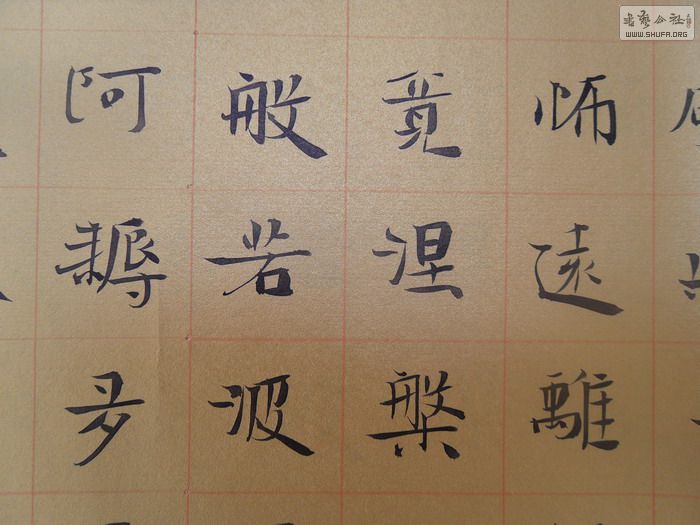 怖遠離
竟涅槃
般若波
阿耨多
書藝公社
WWW.SHUFA.ORG